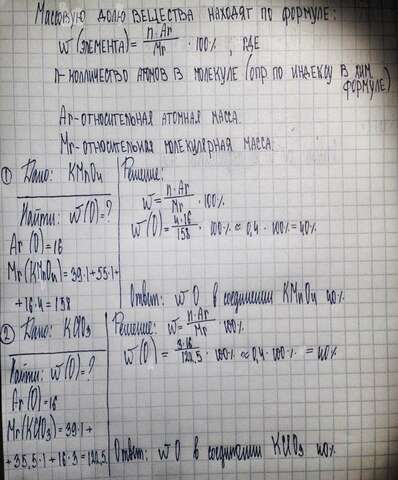 Массовую долю вещества находят по формуле:
w(элемента) = n·Ar/Mr · 100%, где
n-колличество атомов в молекуле (опр по индексу в хим. формуле)
Ar-относительная атомная масса.
Mr-относительная молекулярная масса
① Дано: KMnO4
Найти: w(O)=?
Ar(O)=16
Mr(KMnO4)=39·1+55·1+
+16·4=158
Решение:
w = n·Ar/Mr · 100%
w(O) = 4·16/158 · 100% ≈ 0,4 · 100% = 40%
Ответ: w O в соединении KMnO4 40%
② Дано: KClO3
Найти: w(O)=?
Ar(O)=16
Mr(KClO3)=39·1+
+35,5·1+16·3=122,5
Решение: w = n·Ar/Mr · 100%
w(O) = 3·16/122,5 · 100% ≈ 0,4 · 100% = 40%
Ответ: w O в соединении KClO3 40%